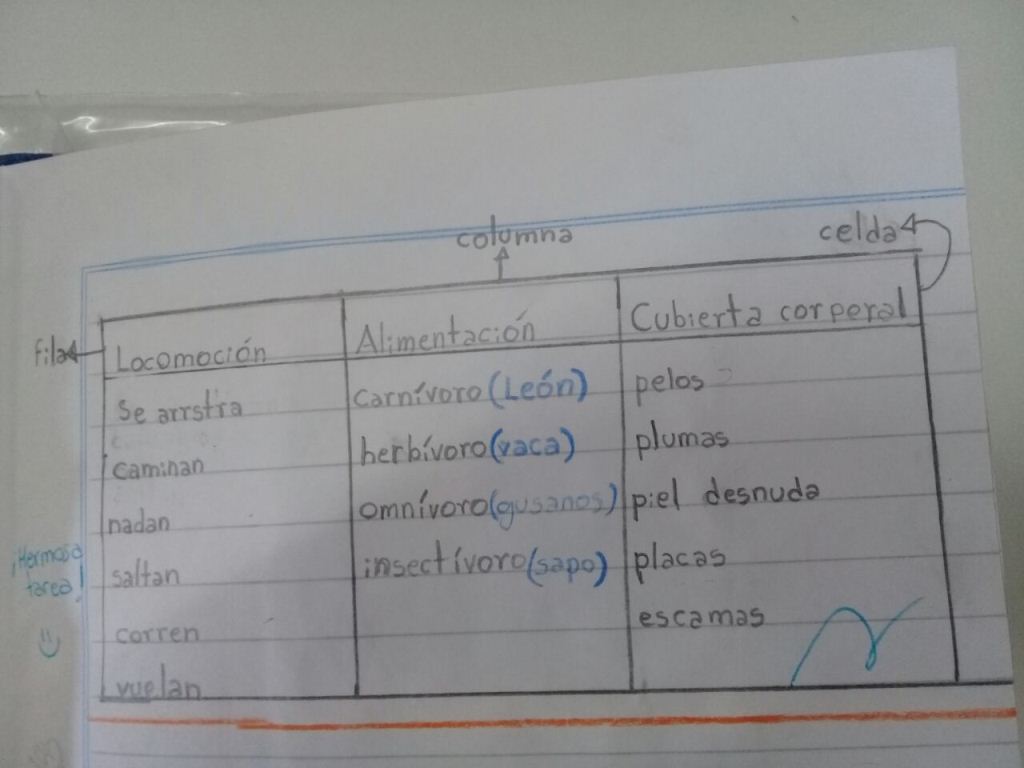 columna
celda
fila
Locomoción Alimentación Cubierta corporal
Se arrstra carnívoro (León) pelos
caminan herbívoro (vaca) plumas
nadan omnívoro (gusanos) piel desnuda
saltan insectívoro (sapo) placas
corren escamas
vuelan
¡Hermosa
tarea!